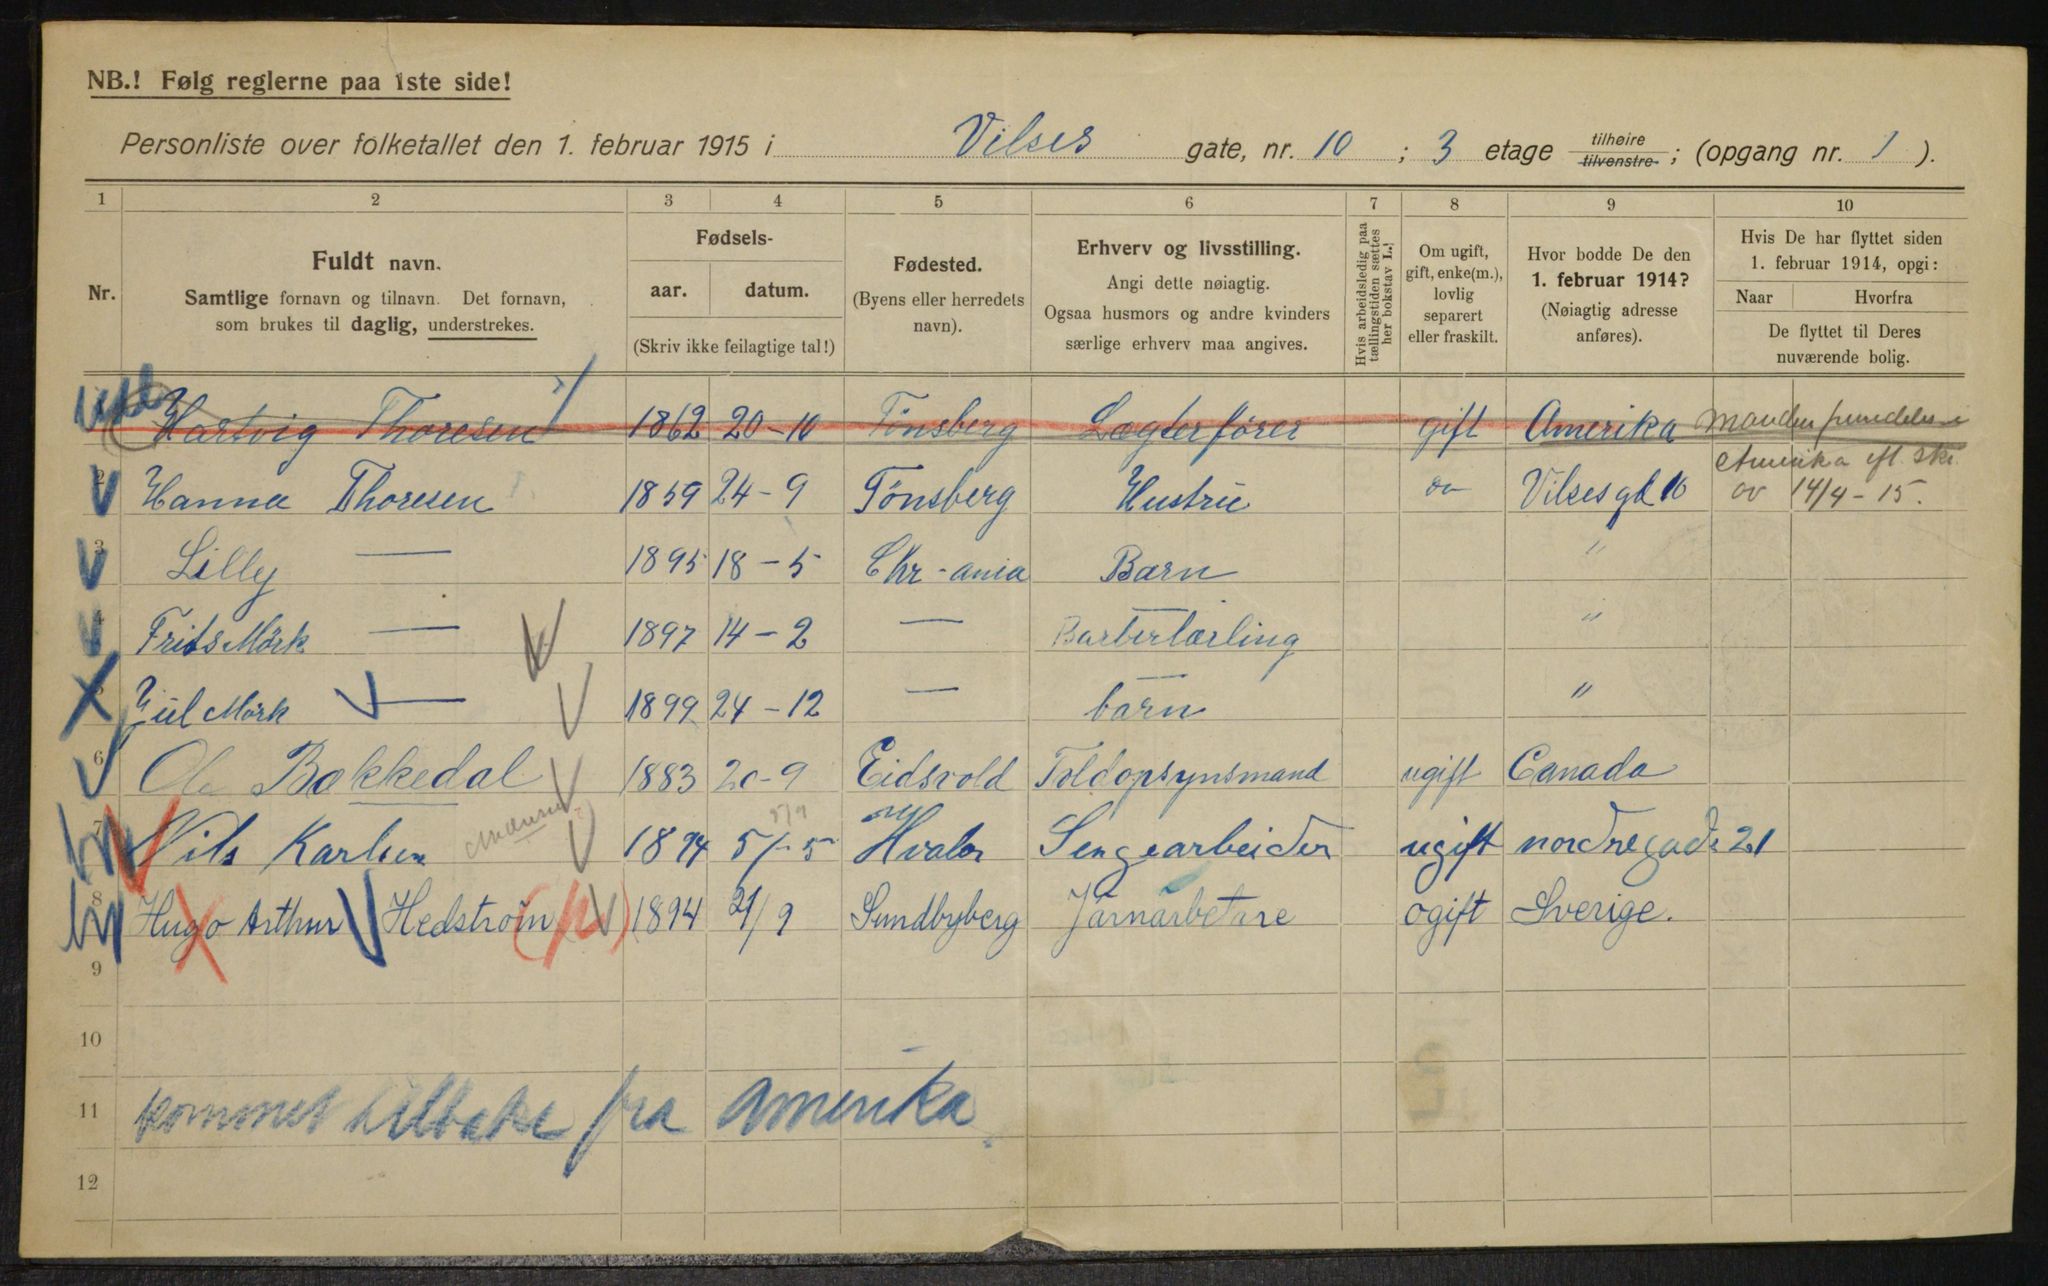 NB.! Følg reglerne paa 1ste side!
Personliste over folketallet den 1. februar 1915 i Vilses gate, nr. 10 ; 3 etage tilhøire tilvenstre ; (opgang nr. 1 ).
1 2 3 4 5 6 7 8 9 10
Nr.
Fuldt navn.
Samtlige fornavn og tilnavn. Det fornavn,
som brukes til daglig, understrekes.
Fødsels-
aar. datum.
(Skriv ikke feilagtige tal!)
Fødested.
(Byens eller herredets
navn).
Erhverv og livsstilling.
Angi dette nøiagtig.
Ogsaa husmors og andre kvinders
særlige erhverv maa angives.
Hvis arbeidsledig paa
tællingstiden sættes
her bokstav L.!
Om ugift,
gift, enke(m.),
lovlig
separert
eller fraskilt.
Hvor bodde De den
1. februar 1914?
(Nøiagtig adresse
anføres).
Hvis De har flyttet siden
1. februar 1914, opgi:
Naar Hvorfra
De flyttet til Deres
nuværende bolig.
Hartvig Thoresen 1862 20-10 Tönsberg Lægterfører gift Amerika Manden fremdeles i
Amerika efl. skr.
2 Hanna Thoresen 1859 24-9 Tönsberg Hustru Vilsesgd 10 av 14/4-15.
3 Lilly — 1895 18-5 Chr-ania Barn "
4 Frits Mörk — 1897 14-2 — Barberlærling "
5 Juel Mörk — 1899 24-12 — barn "
6 Ola Bakkedal 1883 20-9 Eidsvold Toldopsynsmand ugift Canada
7 Nils Karlsen 1894 5/-5 Hvaler Sengearbeider ugift nordregade 21
8 Hugo Arthur Hedström 1894 21/9 Sundbyberg Järnarbetare ogift Sverige.
9
10
11 kommet tilbake fra Amerika.
12